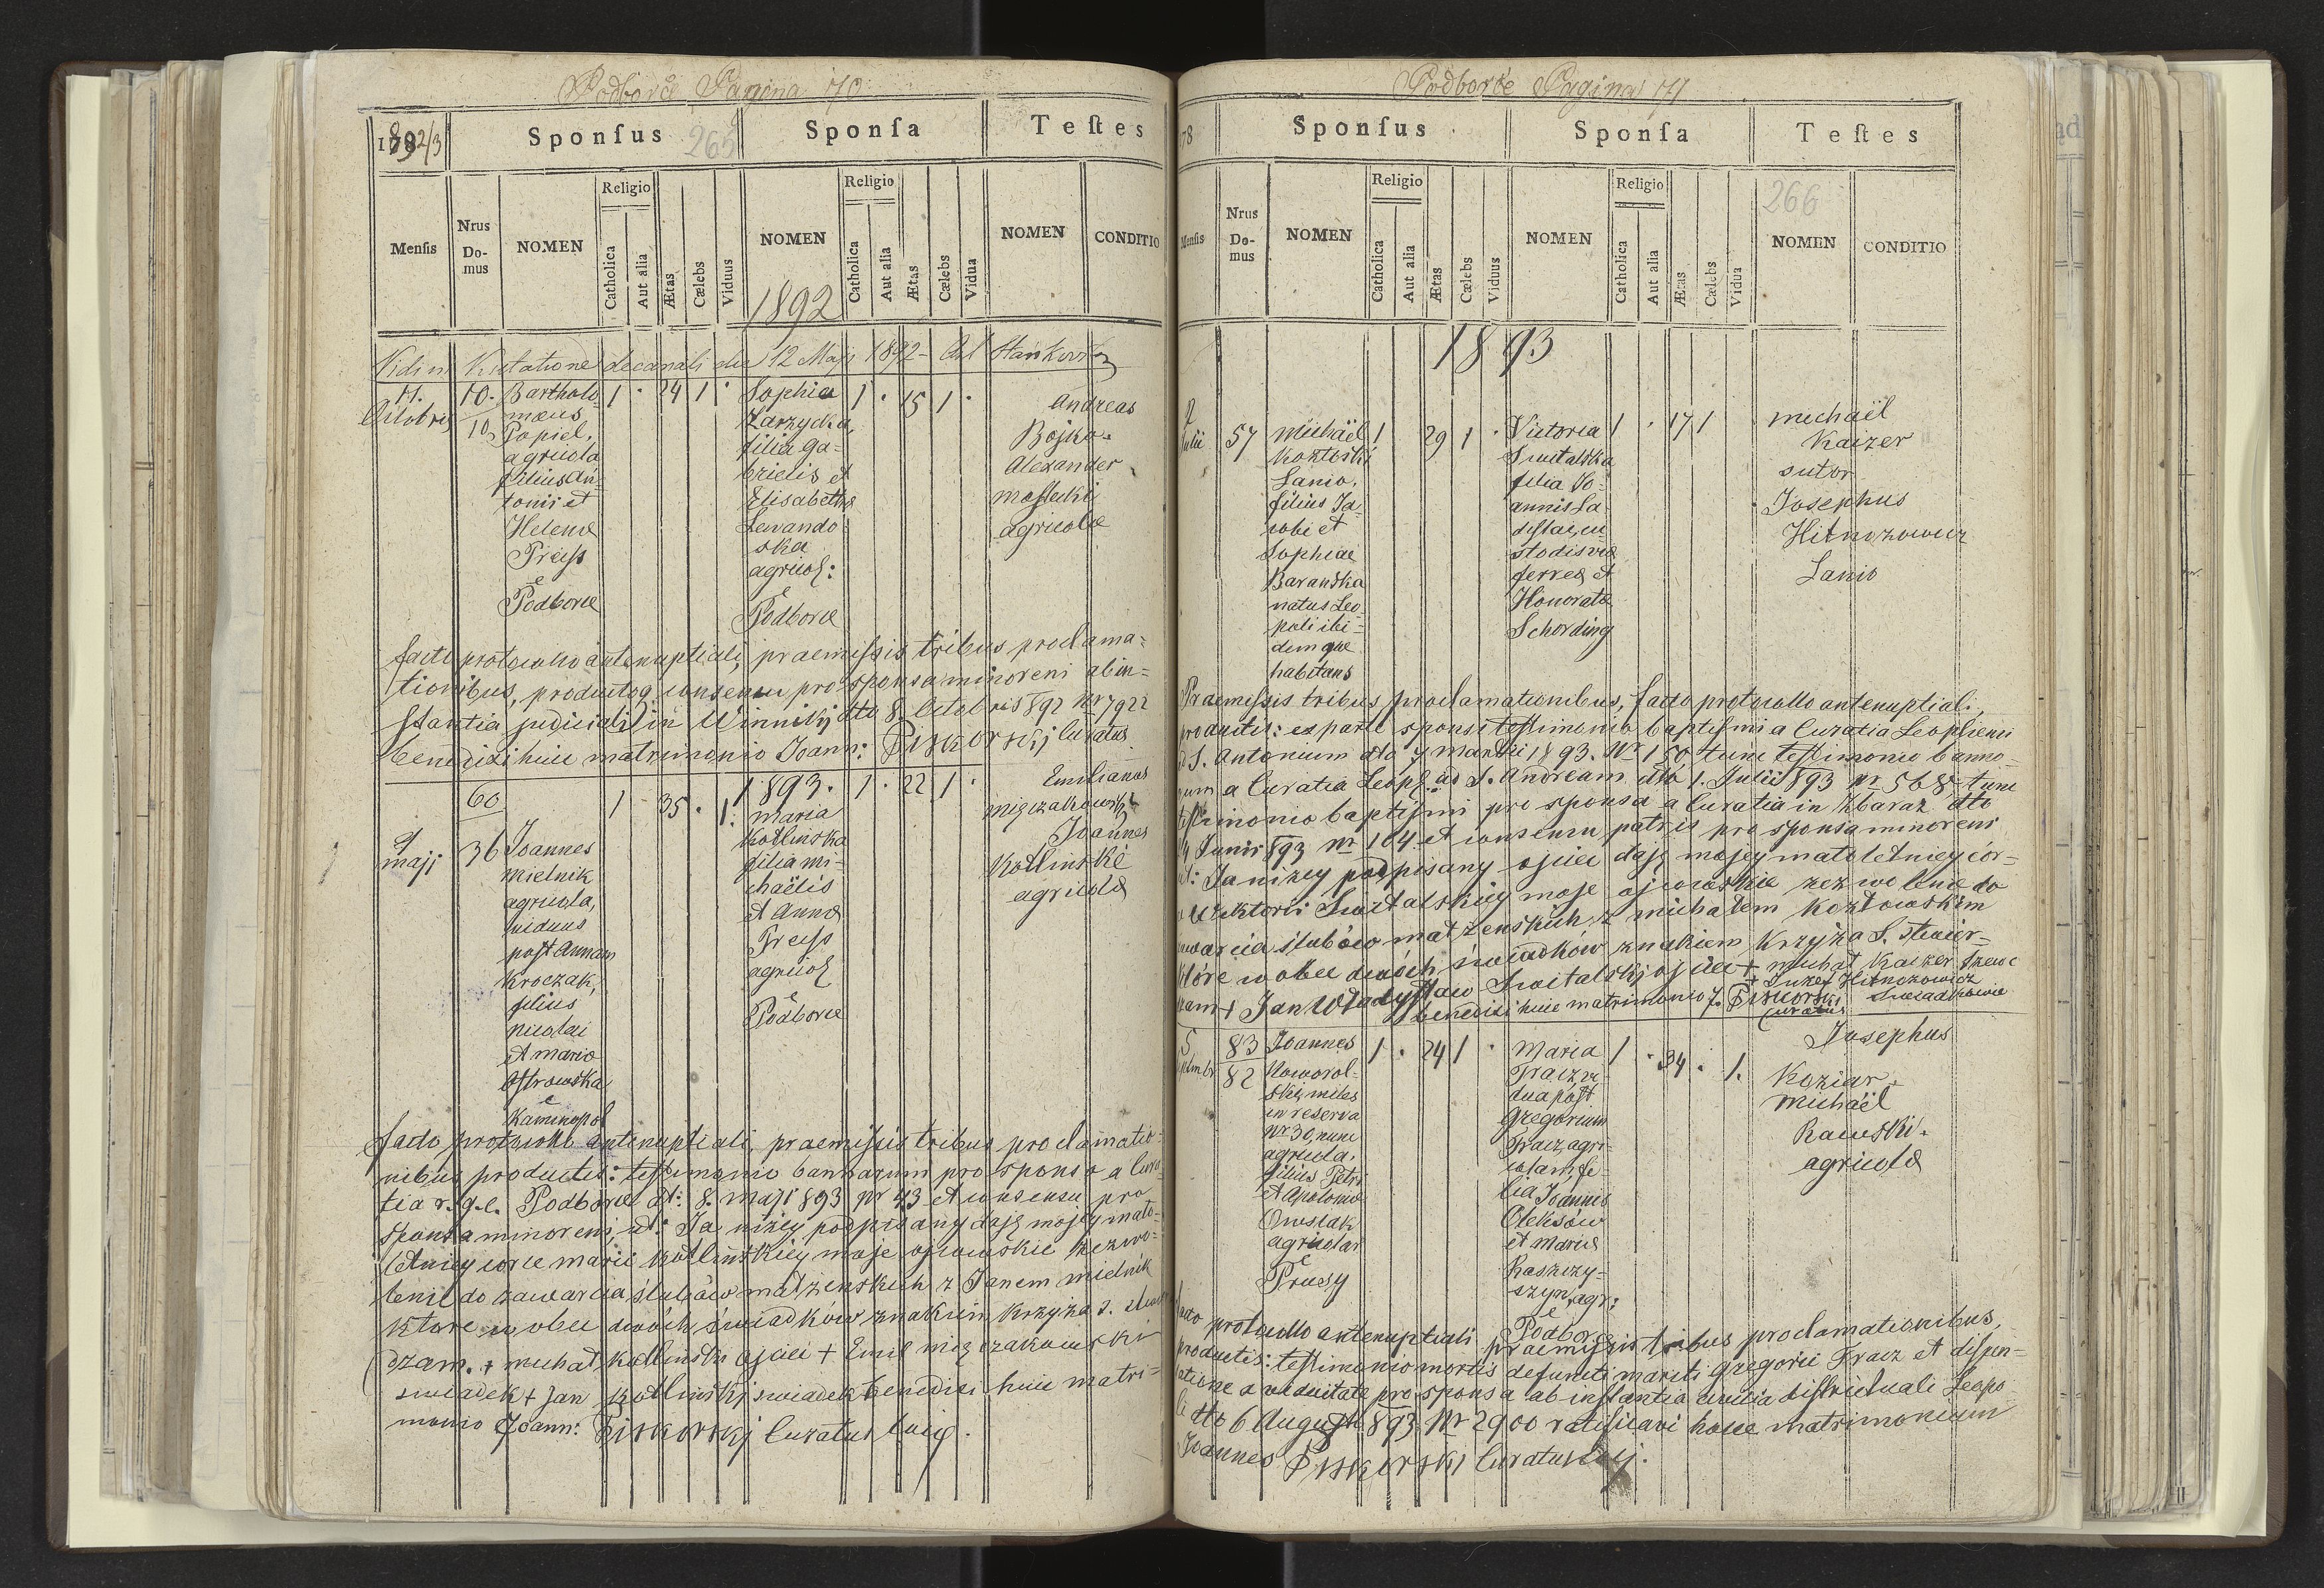 Podborce Pagina 70.
1892/3
Sponſus
265
Sponſa
Teſtes
Menſis
Nrus Domus
NOMEN
Religio
Catholica
Aut alia
Ætas
Cælebs
Viduus
NOMEN
Religio
Catholica
Aut alia
Ætas
Cælebs
Vidua
NOMEN
CONDITIO
1892
Vidi in decanali die 12 Maji 1892
11.
Octobris
10.
10
Bartholo
mæus
Popiel,
agricola
filius An-
tonii et
Helenæ
Preiss
e
Podborce
1 · 24 1 ·
Sophia
Zarzycka,
filia Ga-
brielis et
Elisabethæ
Lewando
ska
agricol:
e
Podborce
1 · 15 1 ·
Andreas
Bojko.
Alexander
Mossecki
agricolæ
facto protocollo antenuptiali, praemissis tribus proclama-
tionibus, productoq. consensu pro sponsa minoreni ab in-
stantia judiciali in Winniki dto 8 Octobris 892 Nr 7922
benedixi huic matrimonio Joann: Piskorskj Curatus
1893.
60
9
maji
36
Joannes
Mielnik
agricola,
viduus
post Annam
Kroczak,
filius
Nicolai
et Mariæ
Ostrowska
e
Kamenopol
1 · 35 · 1.
Maria
Kotlinska
filia Mi-
chaëlis
et Annæ
Preiss
agricol
e
Podborce
1 · 22 1 ·
Emilianus
Migczakowski
Joannes
Kotlinski
agricolæ
facto protocollo antenuptiali, praemissis tribus proclamatio-
nibus, productis: testimonio bannorum pro sponso a Cura-
tia r. g. c. Podborce dt: 8. Maji 893 Nr 43 et consensu pro
sponsa minoreni, dt: Ja niżey podpisany daję mojey mało-
letniey corce Marii Kotlinskiey moje ojcowskie zezwo-
lenie do zawarcia ślubów małżenskich z Janem Mielnik
które w obec dwóch świadków znakiem krzyża S.
dzam. + Michał Kotlinski ojciec + Emil Migczakowski
swiadek + Jan Kotlinskj swiadek benedixi huic matri-
monio Joann: Piskorskj Curatus
Podborce Pagina 71
178
Sponſus
Sponſa
Teſtes
266
Menſis
Nrus Domus
NOMEN
Religio
Catholica
Aut alia
Ætas
Cælebs
Viduus
NOMEN
Religio
Catholica
Aut alia
Ætas
Cælebs
Vidua
NOMEN
CONDITIO
1893
2
Julii
57
Michaël
Kozłoski
Lanio,
filius Ja-
cobi et
Sophiae
Baranska
natus Leo-
poli ibi-
demque
habitans
1 29 1 ·
Victoria
Switalska
filia Jo-
annis La-
dislai, cu-
stodis viæ
ferreæ et
Honoratæ
Schording
1 · 17 1
Michaël
Kaizer
sutor
Josephus
Hitnozowicz
Lanio
Praemissis tribus proclamationibus, facto protocollo antenuptiali,
productis: ex parte sponsi testimonio baptismi a Curatia Leopliensi
ad S. Antonium dto 7 Martii 1893. Nr 150 tum testimonio banno-
rum a Curatia Leopl. ad S. Andream dto 1. Julii 893 Nr 568 tum
testimonio baptismi pro sponsa a Curatia in Zbaraz dto
4 Junii 893 Nr 104 et consensu patris pro sponsa minoreni
dt: Ja niżey podpisany ojciec daję mojey małoletniey cór-
ce Wiktorii Switalskiey moje ojcowskie zezwolenie do
zawarcia ślubów małżenskich z Michałem Kozłowskim
które w obec dwóch świadków znakiem krzyża S. stwier-
dzam + Jan Władysław Switalskj ojciec + Michał Kaizer szewc
+ Juzef Hitnozowicz
benedixi huic matrimonio J. Piskorski swiadkowie
Curatus
5
Septembr
83
82
Joannes
Noworol-
ski, miles
in reserva
Nr 30, nunc
agricola,
filius Petri
et Apoloniæ
Owsiak
agricolar
e
Prusy
1 · 24 1 ·
Maria
Tracz vi-
dua post
Gregorium
Tracz, agri-
colam, fi-
lia Joannis
Oleksów
et Mariæ
Kaszczy-
szyn, agr:
e
Podborce
1 · 34 · 1.
Josephus
Koziar,
Michaël
Rawski.
agricolæ
facto protocollo antenuptiali praemissis tribus proclamationibus,
productis: testimonio mortis defuncti mariti Gregorii Tracz et dispen-
satione a viduitate pro sponsa ab instantia civilia districtuali Leopo-
li dto 6 Augusti 893 Nr 2900 ratificavi hocce matrimonium
Joannes Piskorskj Curatus